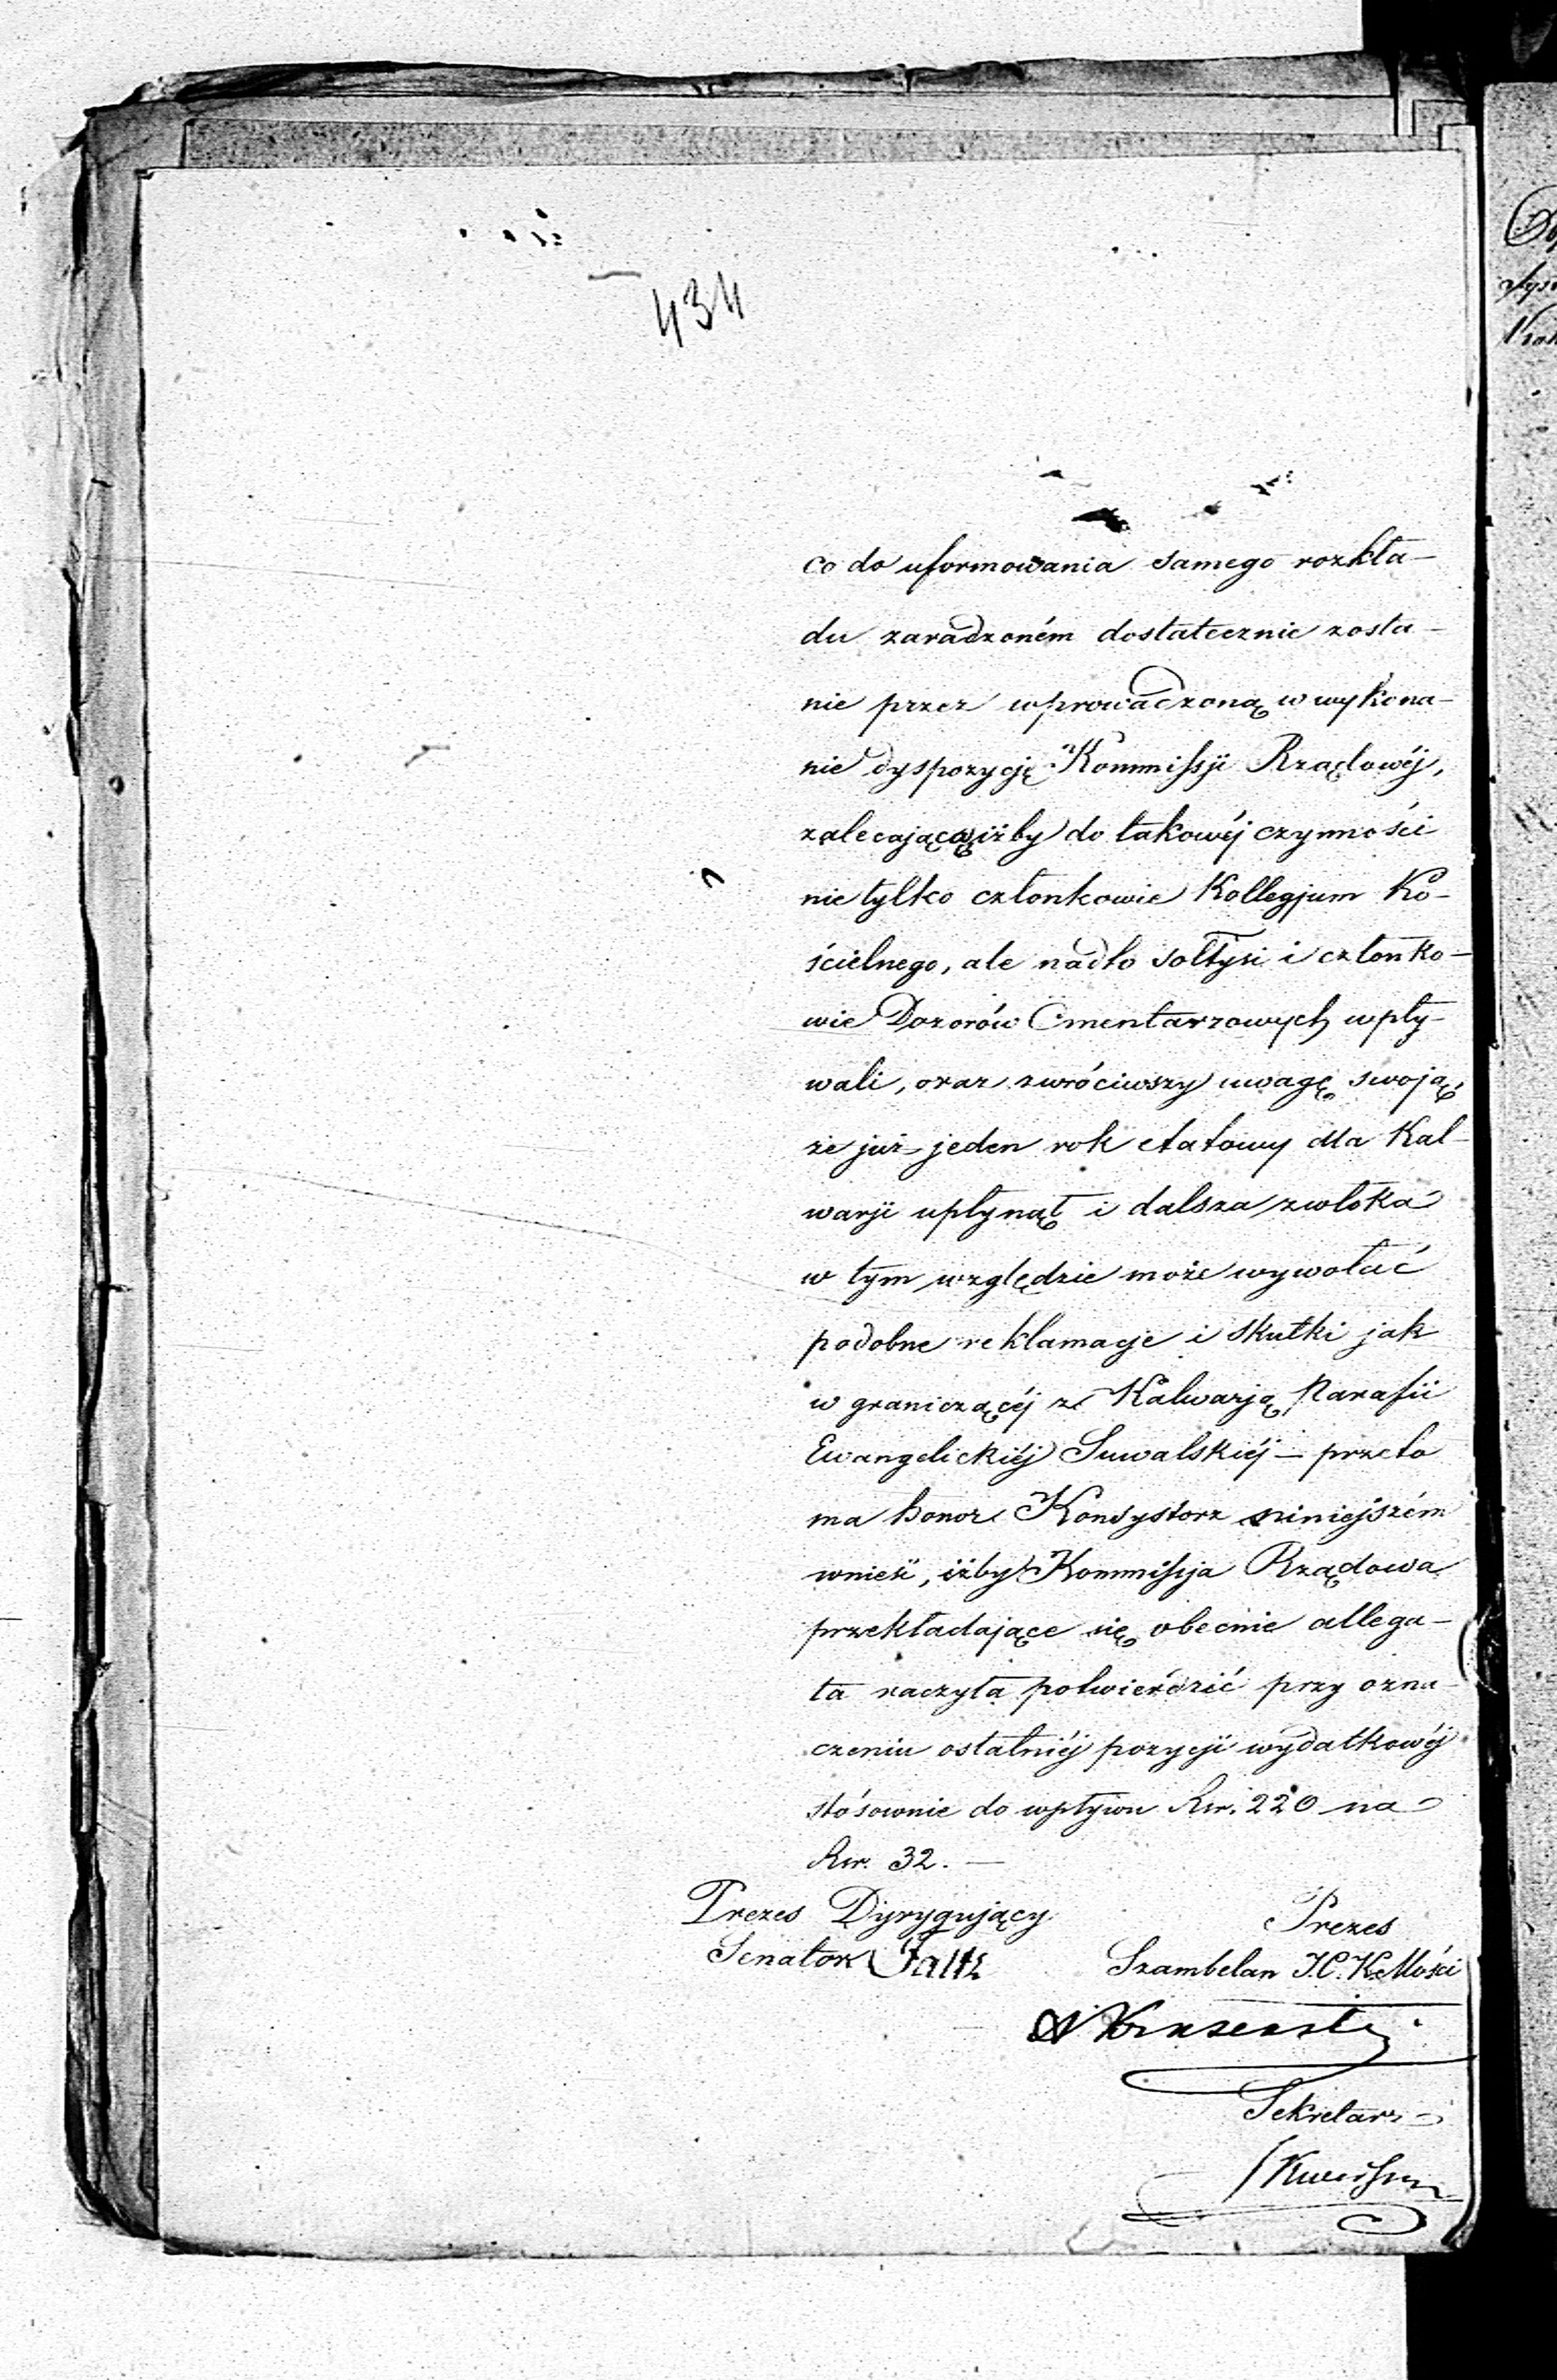 434
co do uformowania samego rozkła-
du zaradzoném dostatecznie zosta-
nie przez wprowadzoną w wykona-
nie dyspozycję Kommissji Rządowéj,
zalecającą iżby do takowéj czynności
nie tylko członkowie Kollegjum Ko-
ścielnego, ale nadto sołtysi i członko-
wie Dozorów Cmentarzowych wpły-
wali, oraz zwróciwszy uwagę swoją,
że już jeden rok etatowy dla Kal-
warji upłynął i dalsza zwłoka
w tym względzie może wywołać
podobne reklamacje i skutki jak
w graniczącéj z Kalwarją Parafii
Ewangelickiéj Suwalskiéj – przeto
ma honor Konsystorz niniejszém
wnieść, iżby Kommissja Rządowa
przekładające się obecnie allega-
ta raczyła potwierdzić przy ozna-
czeniu ostatniéj pozycji wydatkowéj
stósownie do wpływu Rsr. 220 na
Rsr. 32. —
Prezes Dyrygujący
Senator
Prezes
Szambelan J. C. K. Mości
Sekretarz